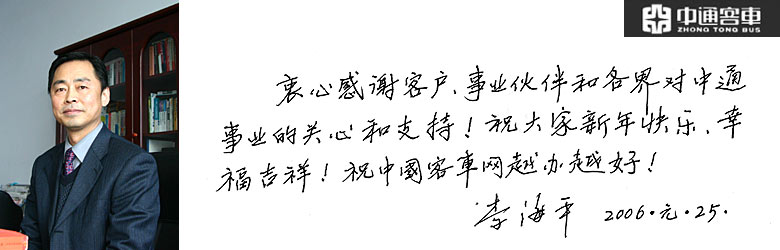 中通客車
ZHONG TONG BUS
衷心感谢客户、事业伙伴和各界对中通
事业的关心和支持！祝大家新年快乐、幸
福吉祥！祝中國客車网越办越好！
李海平 2006.元.25.